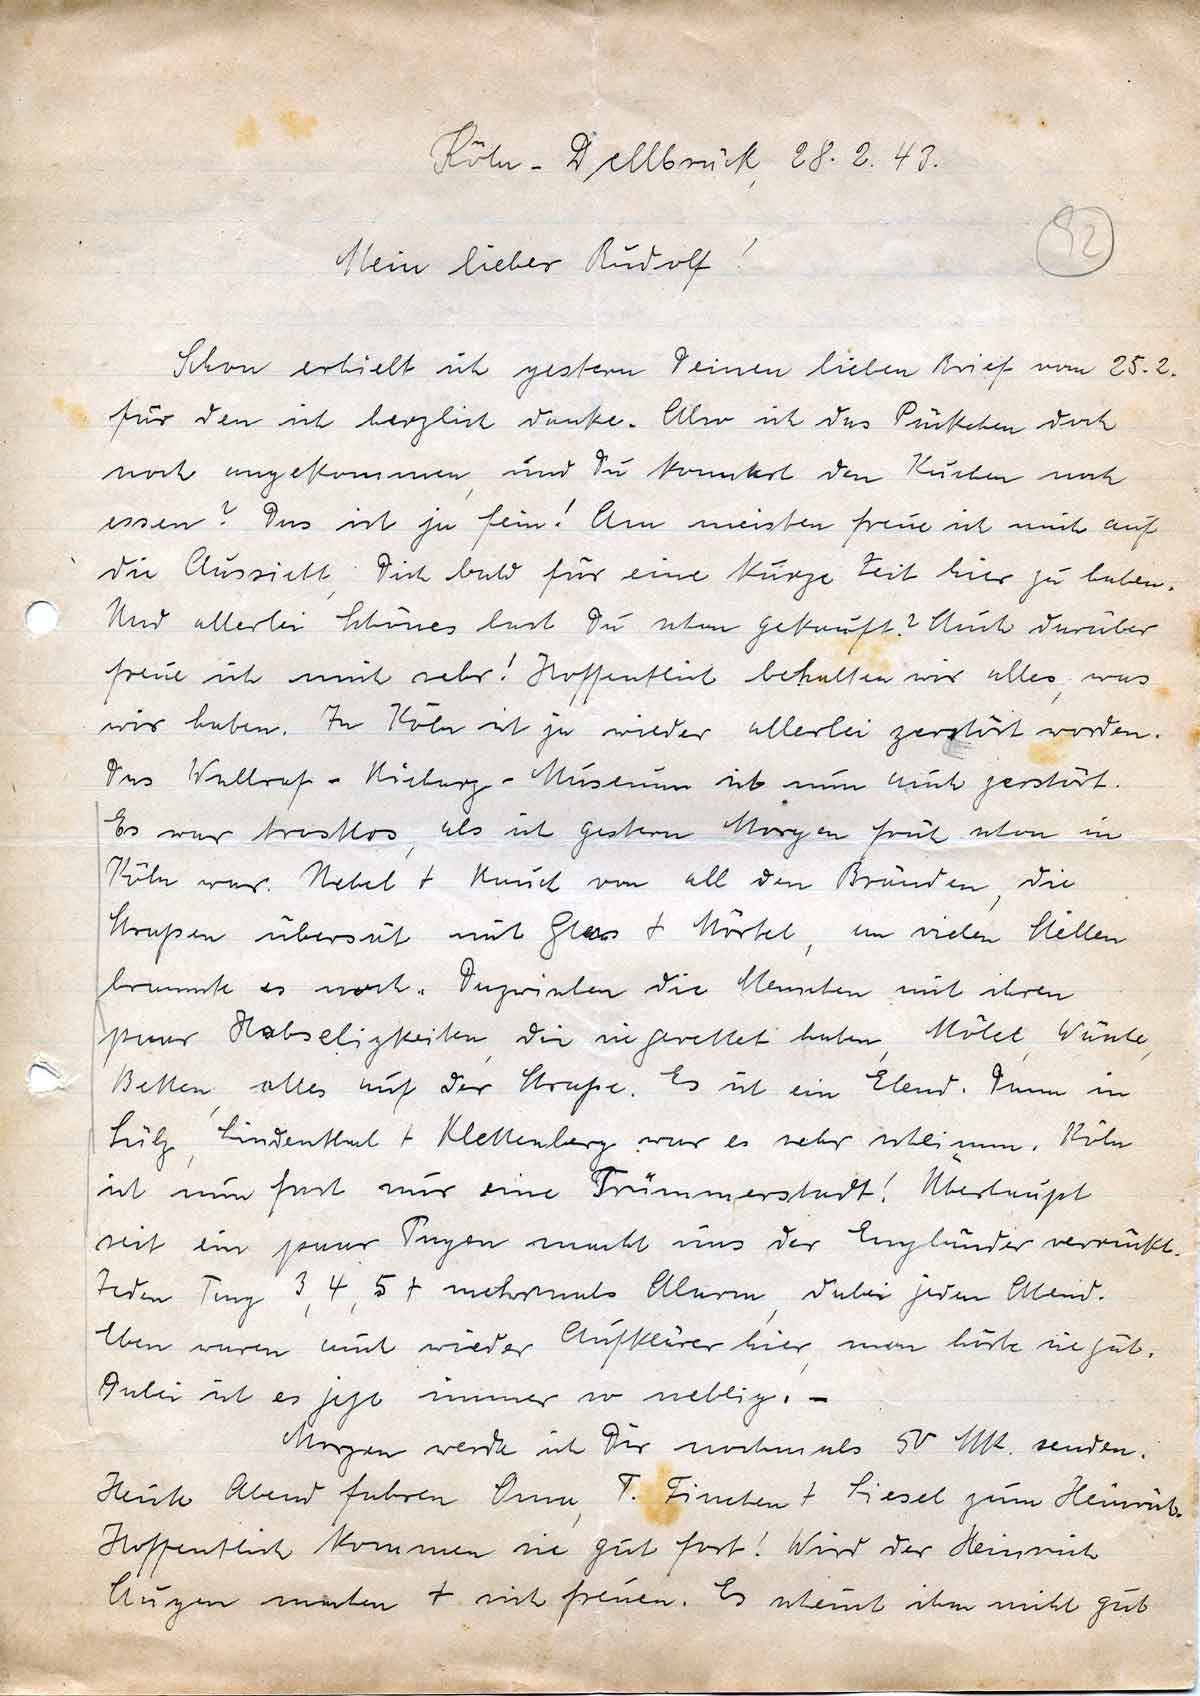 Köln - Dellbrück, 28.2.43.
92
Mein lieber Rudolf!
Schon erhielt ich gestern Deinen lieben Brief vom 25.2.
für den ich herzlich danke. Also ist das Päckchen doch
noch angekommen, und Du konntest den Kuchen noch
essen? Das ist ja fein! Am meisten freue ich mich auf
die Aussicht, Dich bald für eine kurze Zeit hier zu haben.
Und allerlei Schönes hast Du schon gekauft? Auch darüber
freue ich mich sehr! Hoffentlich behalten wir alles, was
wir haben. In Köln ist ja wieder allerlei zerstört worden.
Das Wallraf-Richartz-Museum ist nun auch zerstört.
Es war trostlos, als ich gestern Morgen früh schon in
Köln war. Nebel + Rauch von all den Bränden, die
Straßen übersät mit Glas + Mörtel, an vielen Stellen
brannte es noch. Dazwischen die Menschen mit ihren
paar Habseligkeiten, die sie gerettet haben, Möbel, Wäsche,
Betten, alles auf der Straße. Es ist ein Elend. Dann in
Sülz, Lindenthal + Klettenberg war es sehr schlimm. Köln
ist nun fast nur eine Trümmerstadt! Überhaupt
seit ein paar Tagen macht uns der Engländer verrückt.
Jeden Tag 3, 4, 5 + mehrmals Alarm, dabei jeden Abend.
Eben waren auch wieder Aufklärer hier, man hörte sie gut.
Dabei ist es jetzt immer so neblig. -
Morgen werde ich Dir nochmals 50 Mk. senden.
Heute Abend fahren Oma, T. Finchen + Liesel zum Heinrich.
Hoffentlich kommen sie gut fort! Wird der Heinrich
Augen machen + sich freuen. Es scheint ihm nicht gut